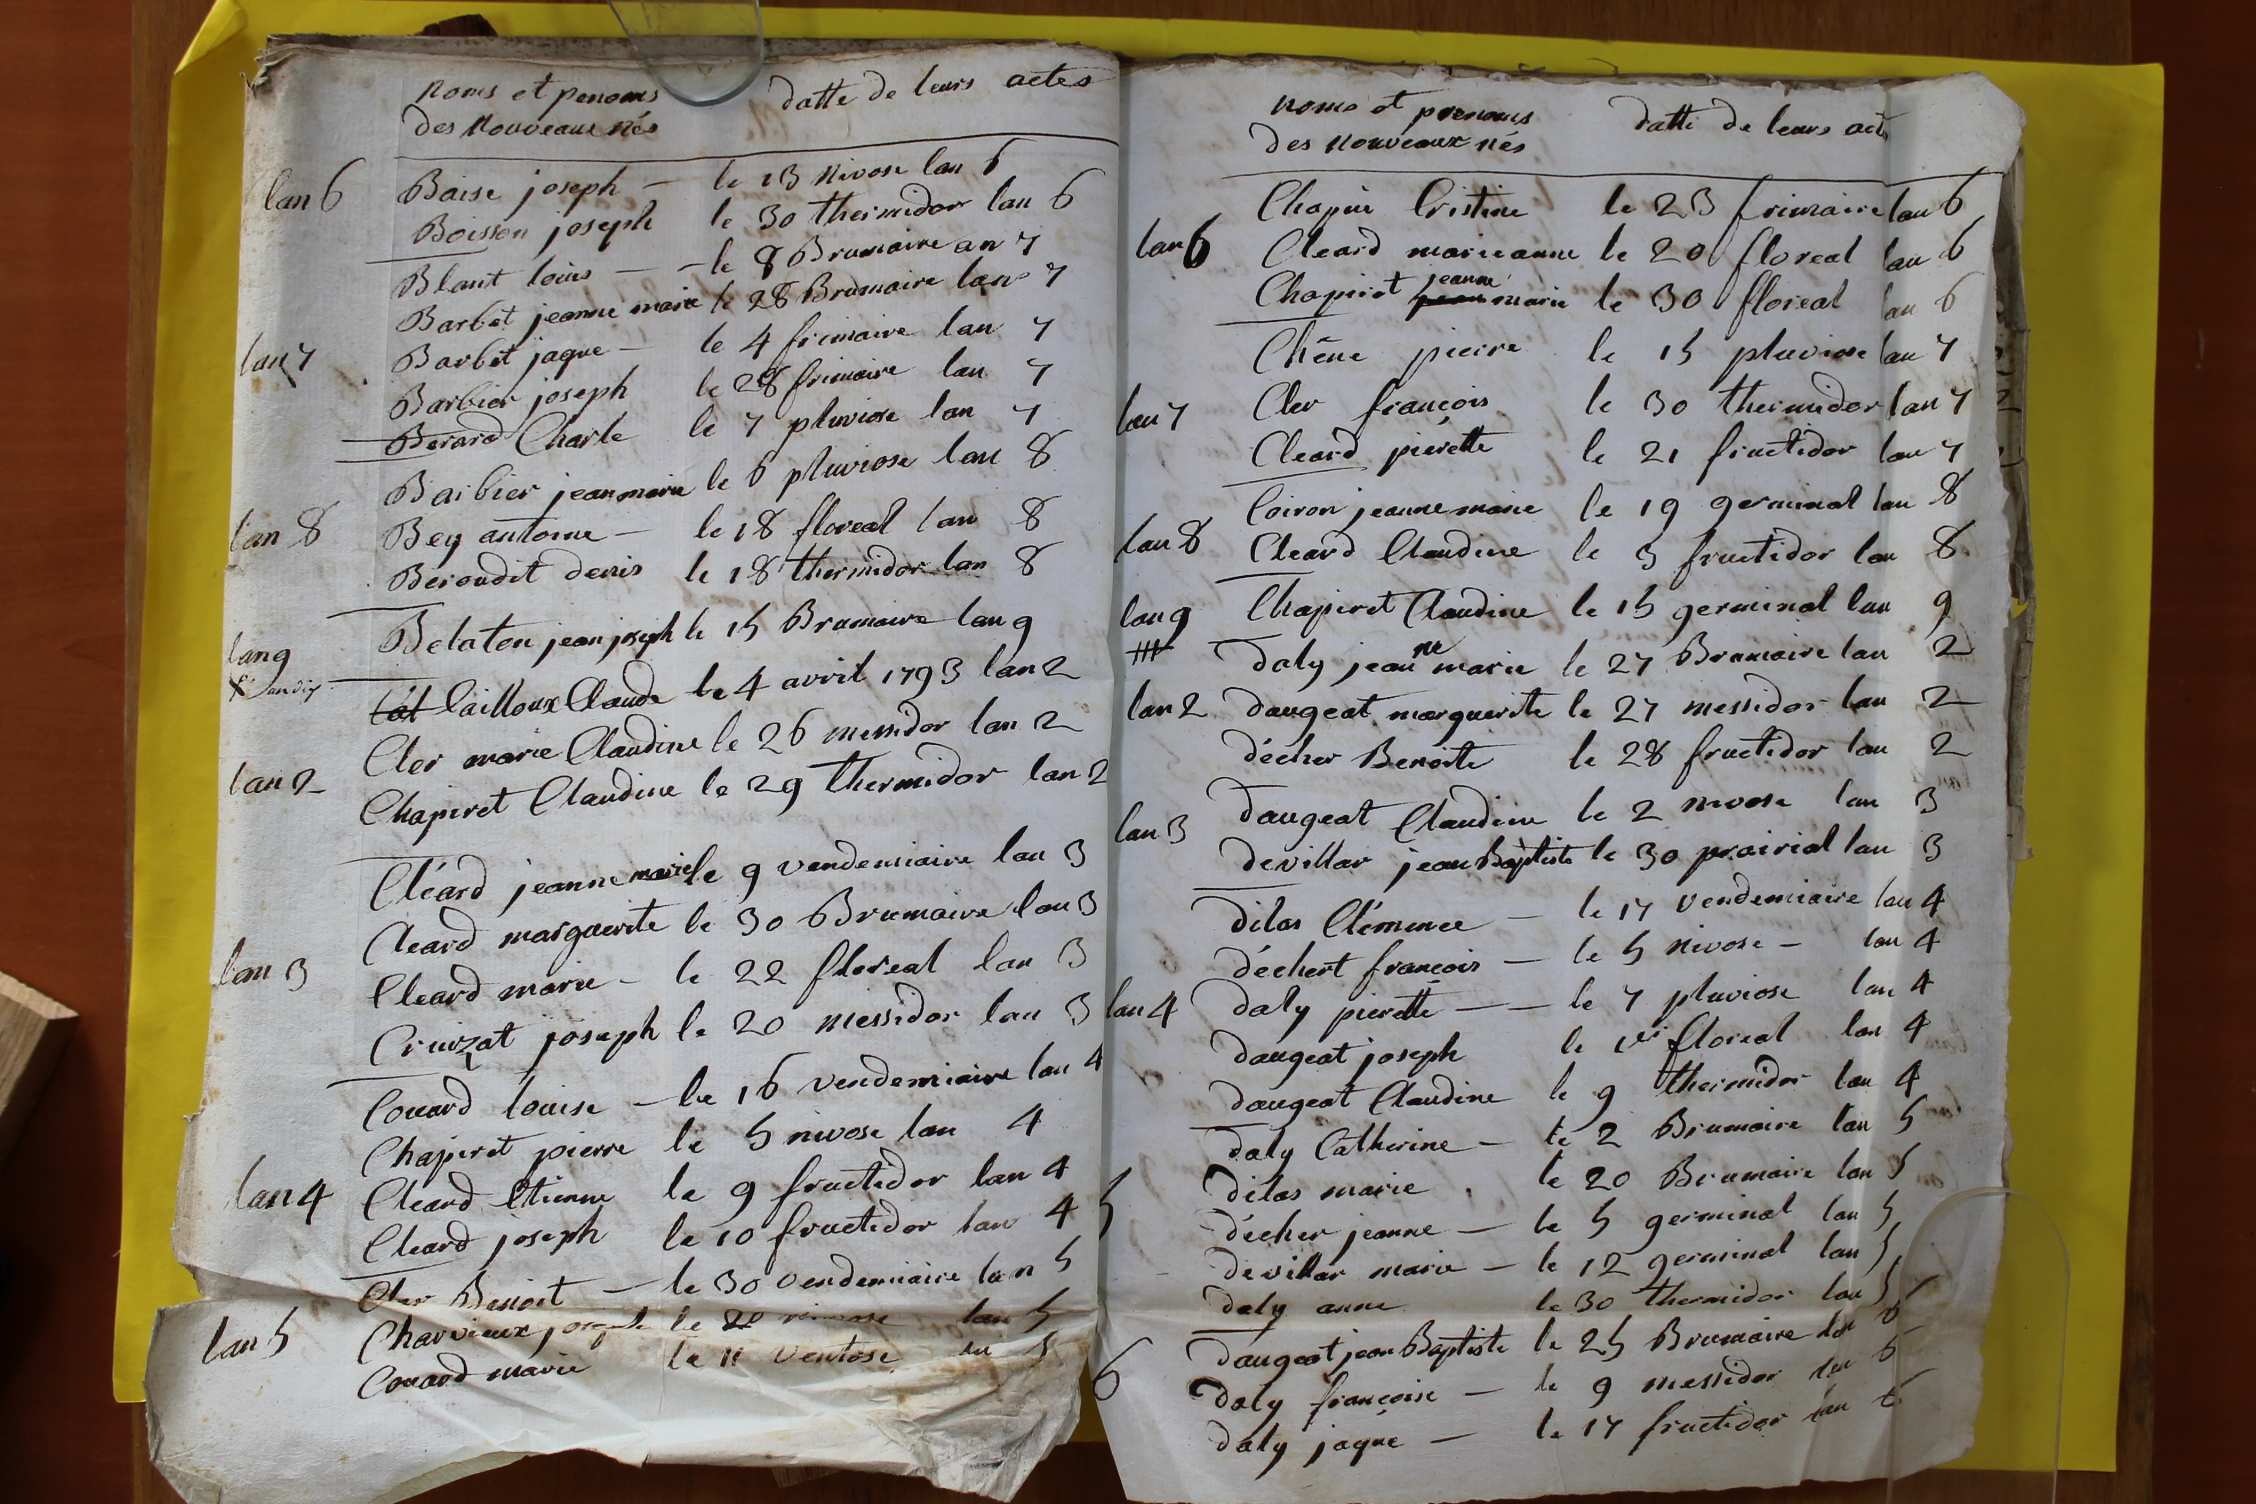 noms et penoms
des nouveaux nés
datte de leurs actes
lan 6
Baise joseph — le 13 nivose lan 6
Boisson joseph le 30 thermidor lan 6
Blant louis — — le 8 Brumaire an 7
Barbet jeanne marie le 28 Brumaire lan 7
lan 7
Barbet jaque — le 4 frimaire lan 7
Barbier joseph le 28 frimaire lan 7
Berard Charle le 7 pluviose lan 7
Barbier jeanmarie le 6 pluviose lan 8
lan 8
Bey antoine — le 18 floreal lan 8
Beroudit denis le 18 thermidor lan 8
lan 9
Belaton jean joseph le 15 Brumaire lan 9
Cailloux Claude le 4 avril 1793 lan 2
Cler marie Claudine le 26 messidor lan 2
lan 2
Chapiret Claudine le 29 thermidor lan 2
Cléard jeanne marie le 9 vendemiaire lan 3
Cleard marguerite le 30 Brumaire lan 3
lan 3
Cleard marie — le 22 floreal lan 3
Cruizat joseph le 20 messidor lan 3
Couard louise — le 16 vendemiaire lan 4
Chapiret pierre le 5 nivose lan 4
lan 4
Cleard Etienne le 9 fructidor lan 4
Cleard joseph le 10 fructidor lan 4
Cler Benoit — le 30 vendemiaire lan 5
lan 5
Charvieux joseph le 20 lan 5
Couard marie le 11 ventose lan 5
noms et prenoms
des nouveaux nés
datte de leurs act
Chapui Cristine le 23 frimaire lan 6
lan 6
Cleard marieanne le 20 floreal lan 6
jeanne
Chapiret marie le 30 floreal lan 6
Chêne pierre le 15 pluviose lan 7
lan 7
Cler françois le 30 thermidor lan 7
Cleard pierette le 21 fructidor lan 7
Coiron jeanne marie le 19 germinal lan 8
lan 8
Cleard Claudine le 3 fructidor lan 8
lan 9
Chapiret Claudine le 15 germinal lan 9
daly jeanne marie le 27 Brumaire lan 2
lan 2
daugeat marguerite le 27 messidor lan 2
décher Benoite le 28 fructidor lan 2
daugeat Claudine le 2 nivose lan 3
lan 3
devillar jean Baptiste le 30 prairial lan 3
dilas Clémence — le 17 vendemiaire lan 4
déchert françois — le 5 nivose — lan 4
lan 4
daly pierette — — le 7 pluviose lan 4
daugeat joseph le 1er floreal lan 4
daugeat Claudine le 9 thermidor lan 4
daly Catherine — le 2 Brumaire lan 5
5
dilas marie le 20 Brumaire lan 5
décher jeanne — le 5 germinal lan 5
devilar marie — le 12 germinal lan 5
daly anne le 30 thermidor lan 5
daugeat jean Baptiste le 25 Brumaire lan 6
6
daly françoise — le 9 messidor lan 6
daly jaque — le 17 fructidor lan 6